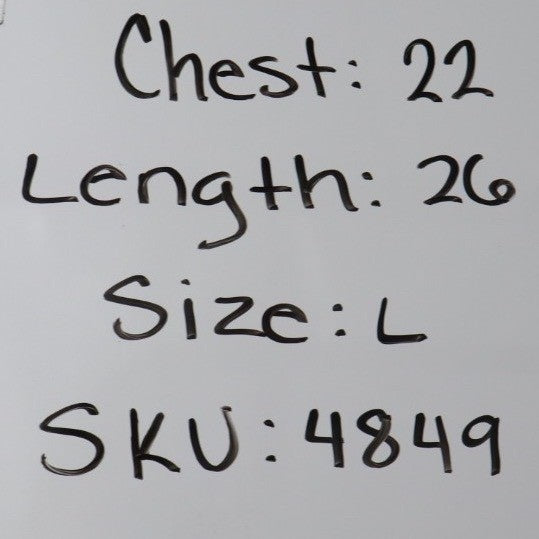 Chest: 22
Length: 26
Size: L
SKU: 4849